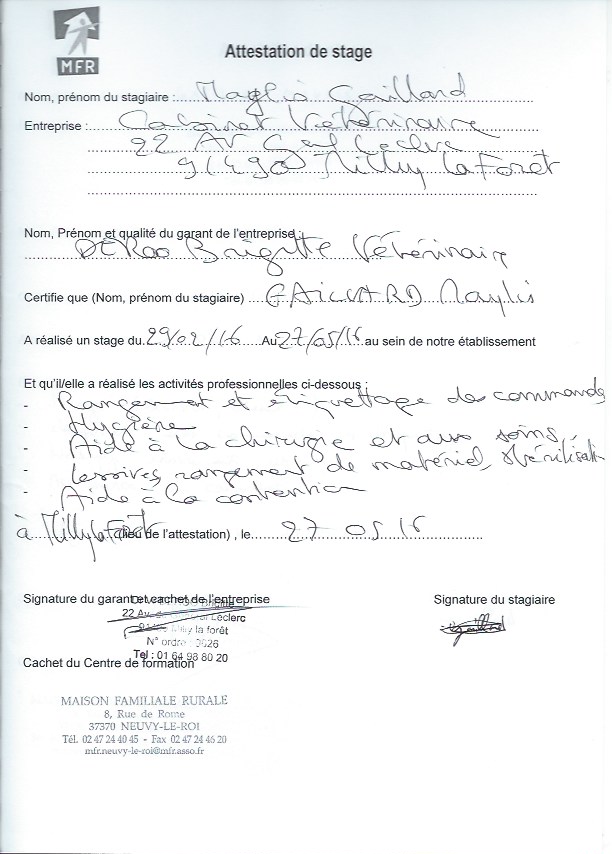 MFR
Attestation de stage
Nom, prénom du stagiaire : Maylis Gaillard
Entreprise : Cabinet Vétérinaire
22 Av Gal Leclerc
91490 Milly la Foret
Nom, Prénom et qualité du garant de l'entreprise :
DEROO Brigitte Vétérinaire
Certifie que (Nom, prénom du stagiaire) GAILLARD Maylis
A réalisé un stage du 29/02/16 Au 27/05/16 au sein de notre établissement
Et qu'il/elle a réalisé les activités professionnelles ci-dessous :
- Rangement et étiquettage de commande
- Hygiène
- Aide à la chirurgie et aux soins,
- Lessives rangement de matériel, stérilisation
- Aide à la contention
à Milly la Forêt (lieu de l'attestation) , le 27 05 16
Signature du garant et cachet de l'entreprise
Signature du stagiaire
22 Leclerc
Milly la forêt
N° ordre
Tel : 01 64 98 80 20
Cachet du Centre de formation
MAISON FAMILIALE RURALE
8, Rue de Rome
37370 NEUVY-LE-ROI
Tél. 02 47 24 40 45 - Fax 02 47 24 46 20
mfr.neuvy-le-roi@mfr.asso.fr